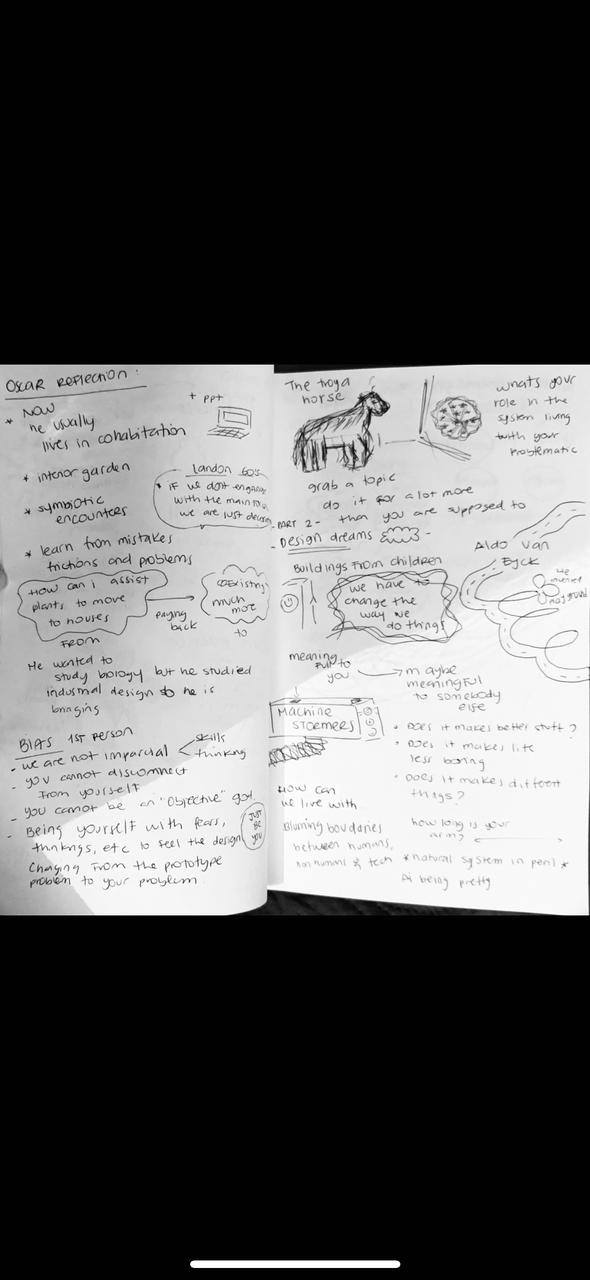 OSCAR REFLECTION :
* NOW
he usually
lives in cohabitation
+ PPT
* interior garden
* symbiotic
encounters
* learn from mistakes
frictions and problems
* if we dont engage
with the main
we are just
How can i assist
plants to move
to houses
FROM
paying
back
coexisting
much
more
to
He wanted to
study biology but he studied
industrial design so he is
bringing
BIAS 1ST PERSON
- we are not imparcial
skills
thinking
- you cannot disconnect
from yourself
- you cannot be an "objective" god.
- Being yourself with fears,
thinkngs, etc to feel the design
JUST
BE
YOU
Changing from the prototype
problem to your problem.
The troya
horse
whats your
role in the
system living
with your
problematic
grab a topic
do it for a lot more
than you are supposed to
- PART 2 -
- Design dreams -
Buildings from children
we have to
change the
way we
do things
Aldo Van
Eyck
He
invented
playground
meaning
full to
you
maybe
meaningful
to somebody
else
MACHINE
STORMERS
* Does it makes better stuff?
* Does it makes life
less boring
* Does it makes different
things?
How can
we live with
Blurring boundaries
between humans,
non humans & tech
how long is your
arm?
* natural system in peril *
Ai being pretty